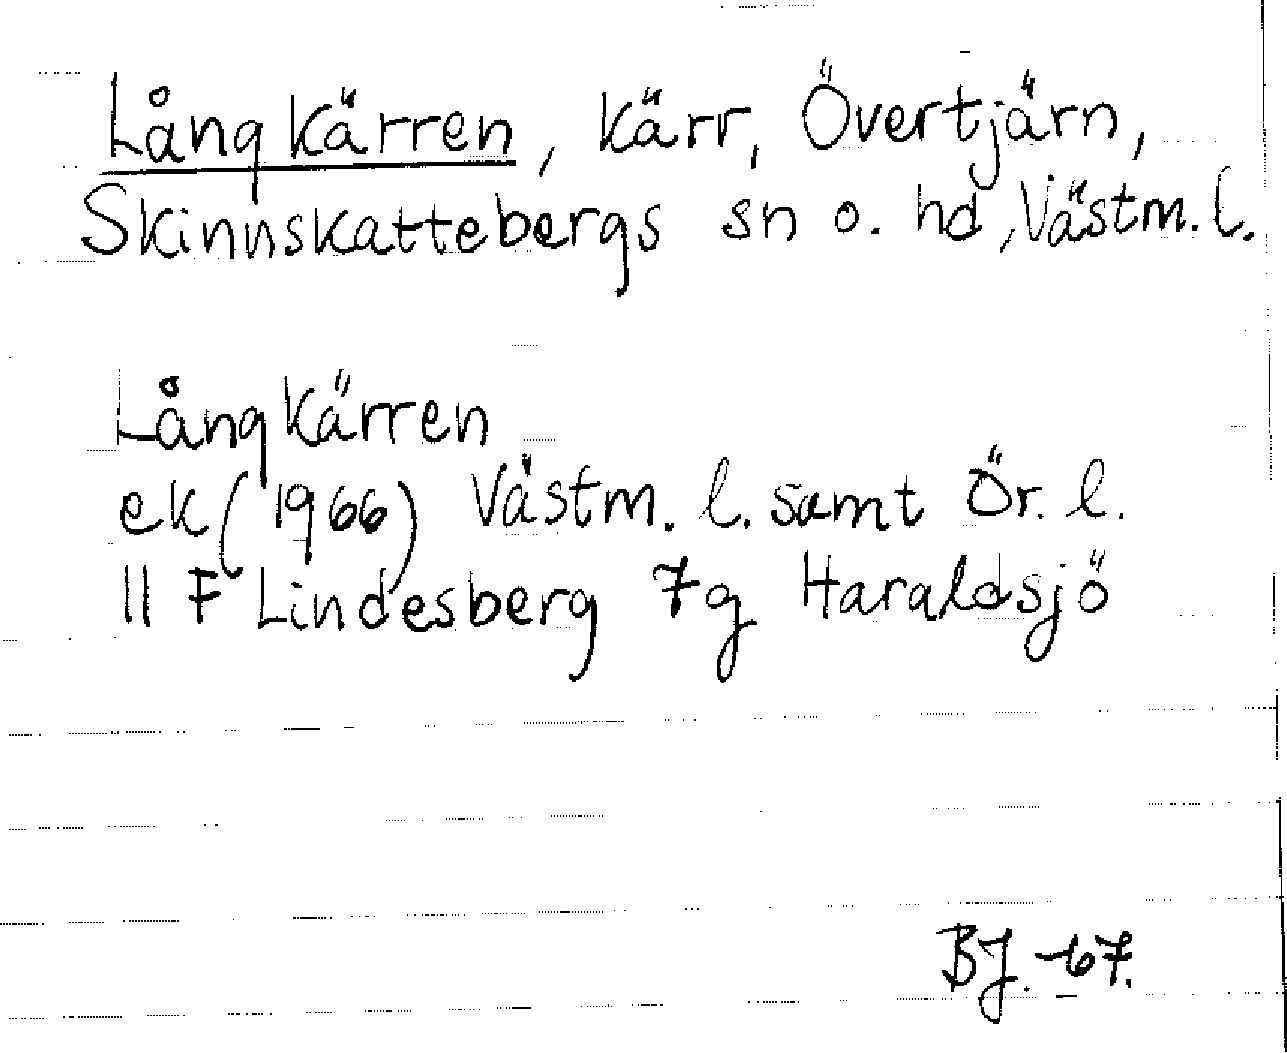 Långkärren, kärr, Övertjärn,
Skinnskattebergs sn o. hd, Västm. l.
Långkärren
ek (1966) Västm. l. samt Ör. l.
11 F Lindesberg 7g Haraldsjö
BJ. -67.